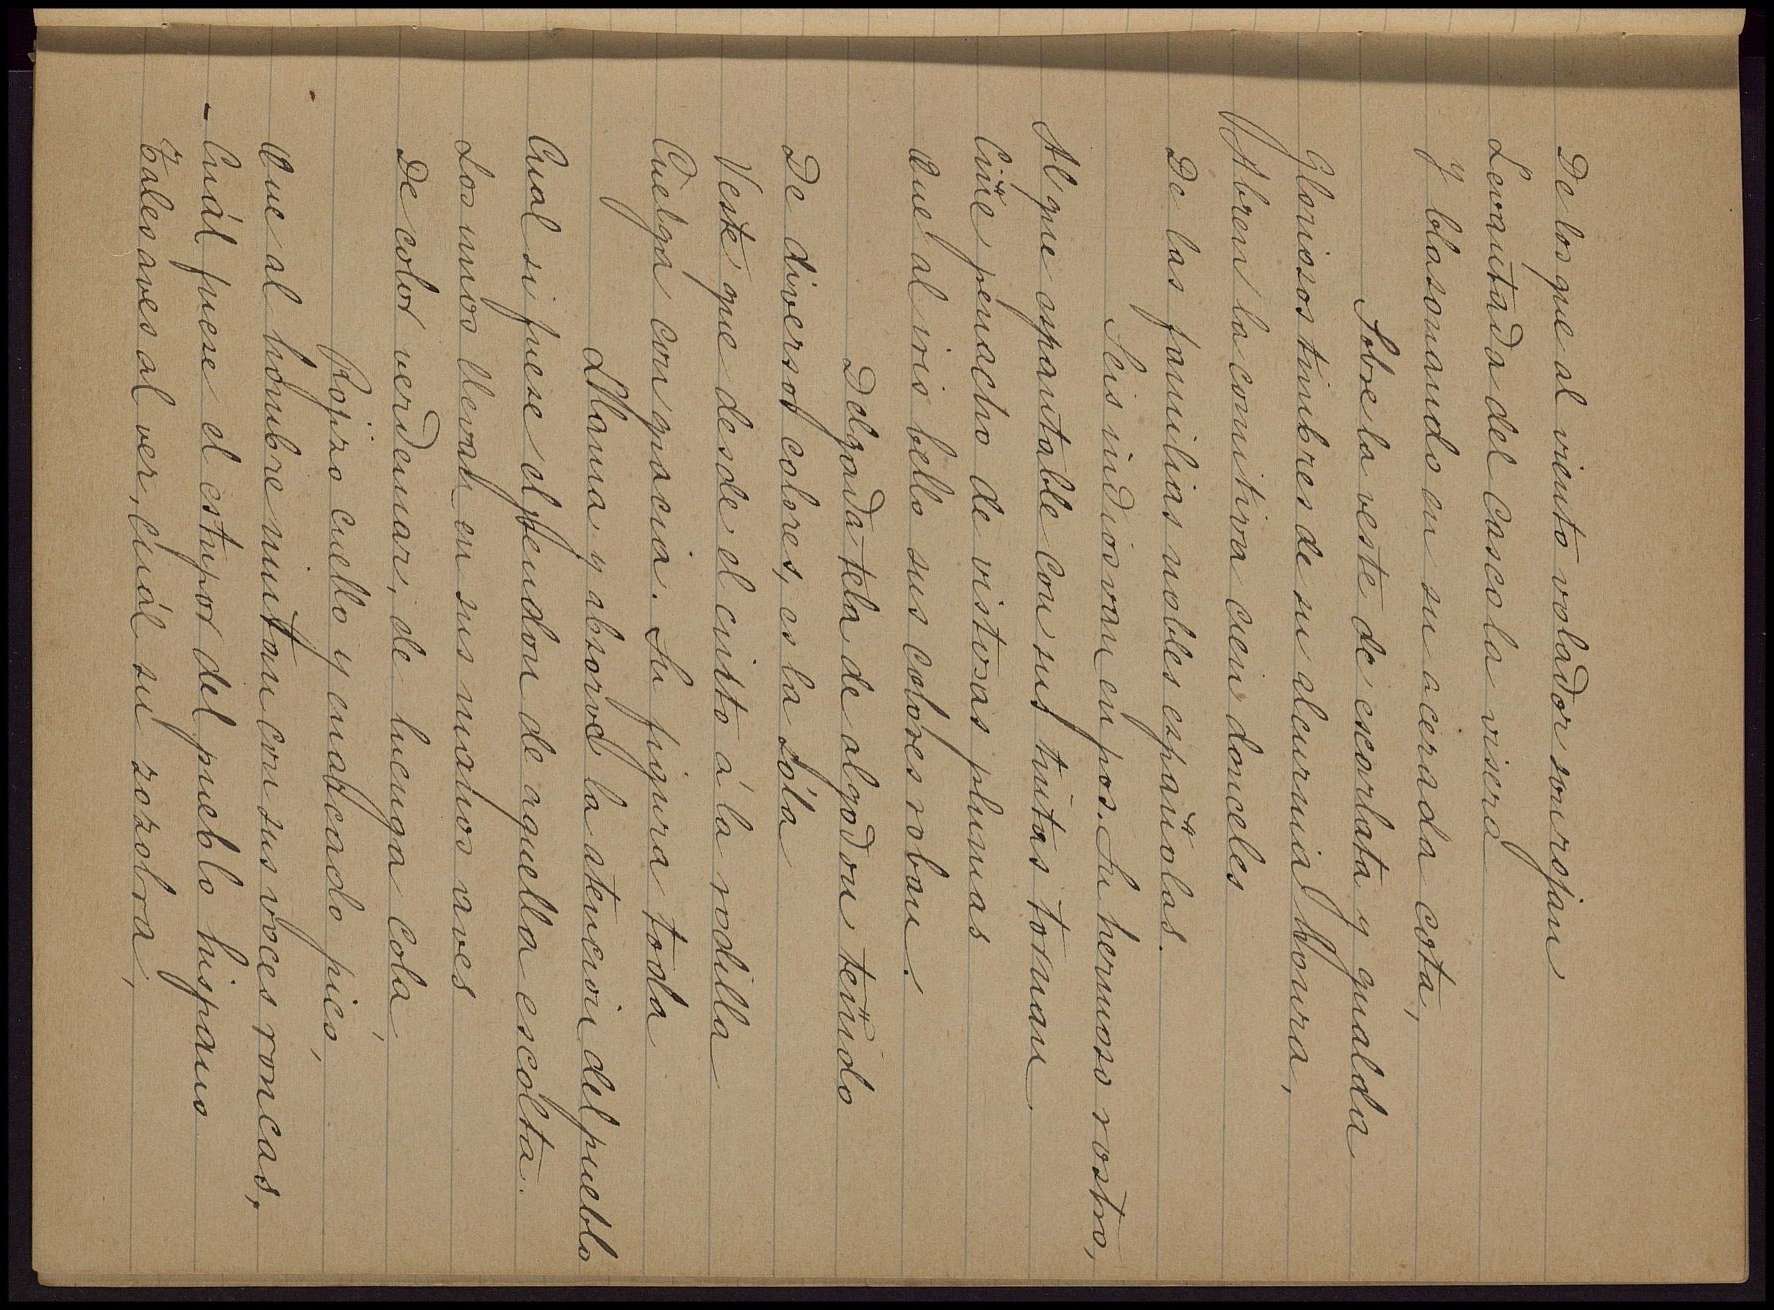 De los que al viento volador son rejan
Levantada del casco la visera
Y blasonando en su acerada cota,
Sobre la veste de escarlata y gualda
Gloriosos timbres de su alcurnia honra,
Abren la comitiva cien donceles
De las familias nobles españolas.
Seis indios van en pos. Su hermoso rostro,
Al que espantable con sus tintas tornan
Ciñe penacho de vistosas plumas
Que al iris bello sus colores roban.
Delgada tela de algodon teñido
De diversos colores, es la sóla
Veste que desde el cinto á la rodilla
Cuelga con gracia. Su figura toda
Llama y absorve la atencion del pueblo
Cual si fuese el pendon de aquella escolta.
Los unos llevan en sus manos aves
De color verdemar, de luenga cola,
Rojizo cuello y enarcado pico,
Que al hombre imitan con sus voces roncas,
- Cuál fuese el estupor del pueblo hispano
Tales aves al ver, cuál su zozobra,